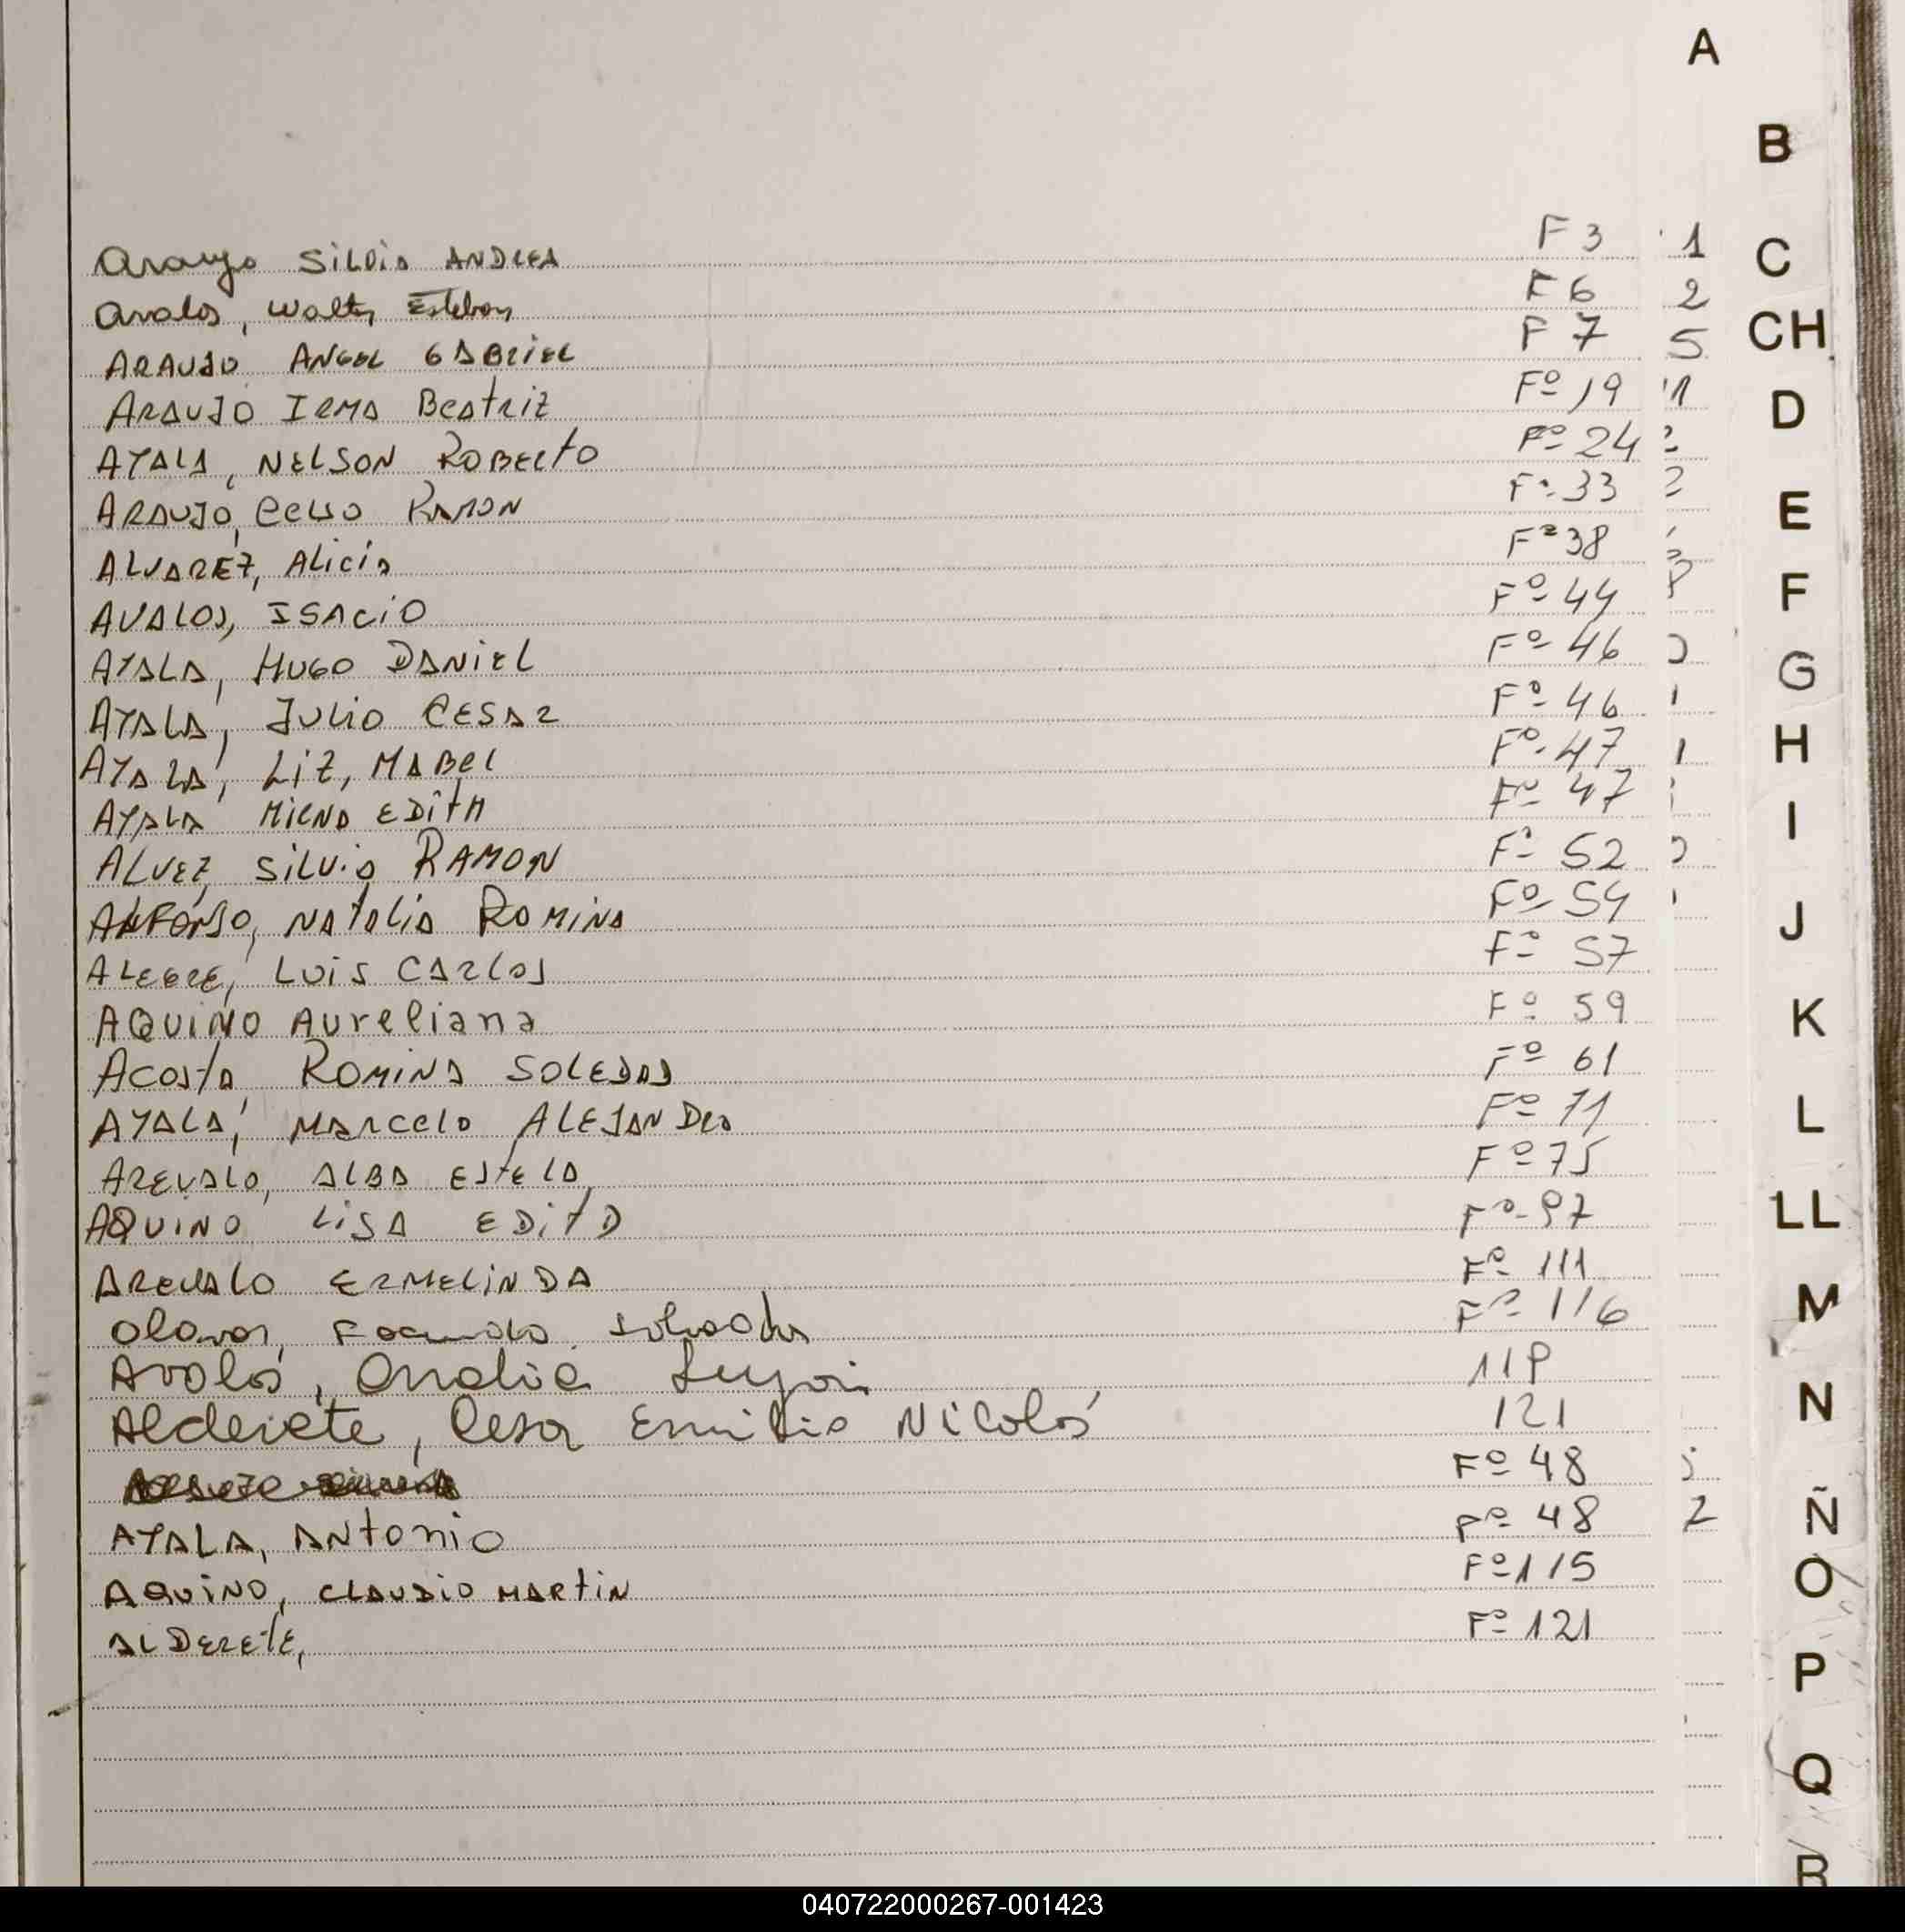 A
B
C
CH
D
E
F
G
H
I
J
K
L
LL
M
N
Ñ
O
P
Q
R
Araujo Silvia ANDREA F 3 1
Avalos, Walter Esteban F 6 2
ARAUJO ANGEL GABRIEL F 7 5
ARAUJO IRMA Beatriz Fº 19
AYALA, NELSON ROBERTO Fº 24
ARAUJO, Celso RAMON Fº 33
ALVAREZ, Alicia Fº 38
AVALOS, ISACIO Fº 44
AYALA, HUGO DANIEL Fº 46
AYALA, JULIO CESAR Fº 46
AYALA, LIZ, MABEL Fº 47
AYALA MIRNA EDITH Fº 47
ALVEZ, SILVIO RAMON Fº 52
ALFONSO, NATALIA ROMINA Fº 54
ALEGRE, LUIS CARLOS Fº 57
AQUINO Aureliana Fº 59
Acosta, ROMINA SOLEDAD Fº 61
AYALA, MARCELO ALEJANDRO Fº 71
AREVALO, ALBA ESTELA Fº 75
AQUINO LISA EDITA Fº 97
AREVALO ERMELINDA Fº 111
Facundo Fº 116
Avalos, Analia Lujan
Alderete, Cesar Emilio Nicolás 121
Fº 48
AYALA, ANTONIO Fº 48 2
AQUINO, CLAUDIO MARTIN Fº 115
ALDERETE, Fº 121
040722000267-001423